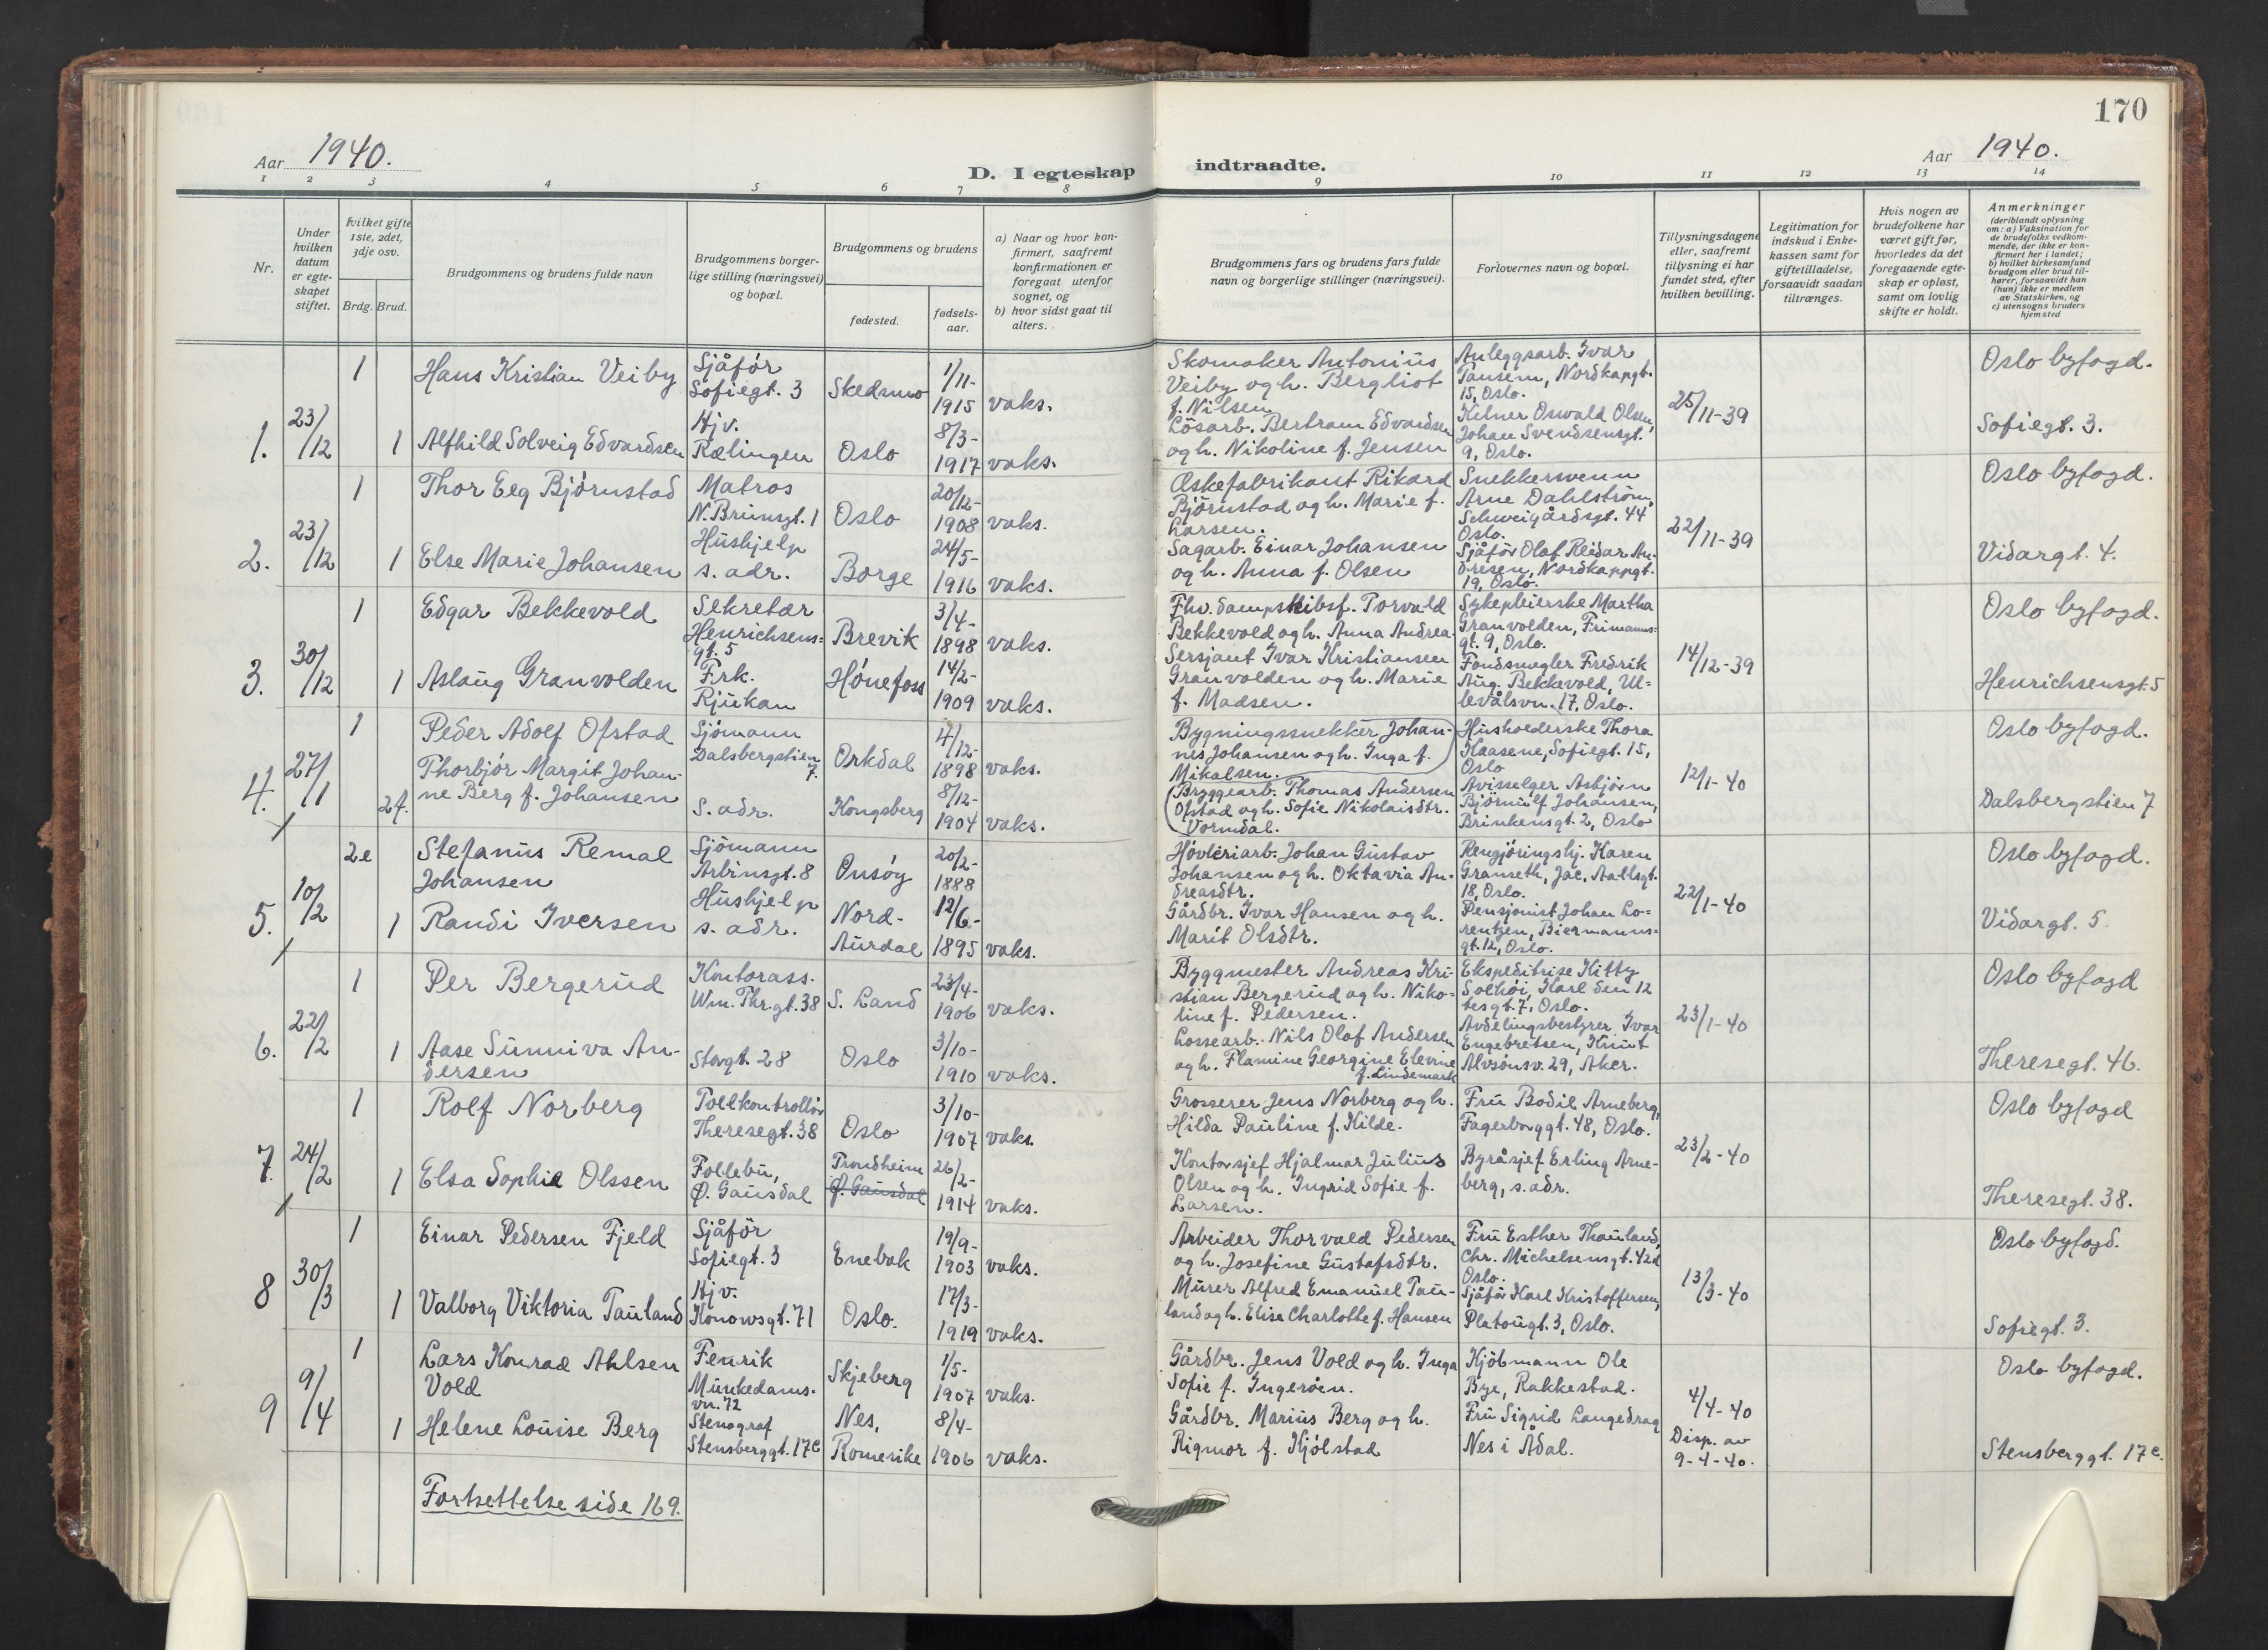 170
Aar 1940.
D. I egteskap indtraadte.
Aar 1940.
1 2 3 4 5 6 7 8 9 10 11 12 13 14
Nr.
Under hvilken datum er egteskapet stiftet.
Hvilket gifte 1ste, 2det, 3dje osv.
Brdg. Brud.
Brudgommens og brudens fulde navn
Brudgommens borgerlige stilling (næringsvei) og bopæl.
Brudgommens og brudens
fødested.
fødselsaar.
a) Naar og hvor konfirmert, saafremt konfirmationen er foregaat utenfor sognet, og
b) hvor sidst gaat til alters.
Brudgommens fars og brudens fars fulde navn og borgerlige stillinger (næringsvei).
Forlovernes navn og bopæl.
Tillysningsdagene eller, saafremt tillysning ei har fundet sted, efter hvilken bevilling.
Legitimation for indskud i Enkekassen samt for giftetilladelse, forsaavidt saadan tiltrænges.
Hvis nogen av brudefolkene har været gift før, hvorledes da det foregaaende egteskap er opløst, samt om lovlig skifte er holdt.
Anmerkninger
(deriblandt oplysning om: a) Vaksination for de brudefolks vedkommende, der ikke er konfirmert her i landet; b) hvilket kirkesamfund brudgom eller brud tilhører, forsaavidt han (hun) ikke er medlem av Statskirken, og c) utensogns bruders hjemsted
1. 23/12
1 Hans Kristian Veiby
Sjåfør
Sofiegt. 3
Skedsmo
1/11-
1915 vaks.
1 Alfhild Solveig Edvardsen
Hjv.
Rælingen
Oslo
8/3-
1917 vaks.
Skomaker Antonius
Veiby og h. Bergliot
f. Nilsen
Løsarb. Bertram Edvardsen
og h. Nikoline f. Jensen
Anleggsarb. Ivar
Tansem, Nordkapgt.
15, Oslo.
Kelner Oswald Olsen,
Johan Svendsensgt.
9, Oslo.
25/11-39
Oslo byfogd.
Sofiegt. 3.
2. 23/12
1 Thor Eeg Bjørnstad
Matros
N. Brunsgt. 1
Oslo
20/12-
1908 vaks.
1 Else Marie Johansen
Hushjelp
s. adr.
Borge
24/5-
1916 vaks.
Æskefabrikant Rikard
Bjørnstad og h. Marie f.
Larsen.
Sagarb. Einar Johansen
og h. Anna f. Olsen
Snekkersvenn
Arne Dahlstrøm,
Schweigårdsgt. 44
Oslo.
Sjåfør Olaf Reidar An-
dresen, Nordkappgt.
19, Oslo.
22/11-39
Oslo byfogd.
Vidargt. 4.
3. 30/12
1 Edgar Bekkevold
Sekretær
Henrichsens=
gt. 5
Brevik
3/4-
1898 vaks.
1 Aslaug Granvolden
Frk.
Rjukan
Hønefoss
14/2-
1909 vaks.
Fhv. dampskibsf. Torvald
Bekkevold og h. Anna Andrea.
Sersjant Ivar Kristiansen
Granvolden og h. Marie
f. Madsen.
Sykepleierske Martha
Granvolden, Frimanns=
gt. 9, Oslo.
Fondsmegler Fredrik
Aug. Bekkevold, Ul=
levålsvn. 17, Oslo.
14/12-39
Oslo byfogd.
Henrichsensgt. 5
4. 27/1
1 Peder Adolf Ofstad
Sjømann
Dalsbergstien
7.
Orkdal
4/12-
1898 vaks.
2f. Thorbjør Margit Johan-
ne Berg f. Johansen
S. adr.
Kongsberg
8/12-
1904 vaks.
Bygningssnekker Johan-
nes Johansen og h. Inga f.
Mikalsen.
Bryggearb. Thomas Andersen
Ofstad og h. Sofie Nikolaisdtr.
Vormdal.
Husholderske Thora
Kaasene, Sofiegt. 15,
Oslo
Avisselger Asbjørn
Bjørnulf Johansen,
Brinkensgt. 2, Oslo
12/1-40
Oslo byfogd.
Dalsbergstien 7
5. 10/2
2e Stefanus Remal
Johansen
Sjømann
Arbinsgt. 8
Onsøy
20/2-
1888
1 Randi Iversen
Hushjelp
s. adr.
Nord-
Aurdal
12/6-
1895 vaks.
Høvleriarb. Johan Gustav
Johansen og h. Oktavia An-
dreasdtr.
Gårdbr. Ivar Hansen og h.
Marit Olsdtr.
Rengjøringshj. Karen
Granseth, Jac. Aallsgt.
18, Oslo.
Pensjonist Johan Lo=
rentzen, Biermanns=
gt. 12, Oslo.
22/1-40
Oslo byfogd.
Vidargt. 5.
6. 22/2
1 Per Bergerud
Kontorass.
Wm. Thr.gt. 38
S. Land
23/4-
1906 vaks.
1 Aase Sunniva An-
dersen
Storgt. 28
Oslo
3/10-
1910 vaks.
Byggmester Andreas Kri-
stian Bergerud og h. Niko=
line f. Pedersen.
Lossearb. Nils Olaf Andersen
og h. Flamine Georgine Elevine
f. Lindemark
Ekspeditrise Kitty
Solhøi, Karl den 12
tesgt. 7, Oslo.
Avdelingsbestyrer Ivar
Engebretsen, Knut
Alvsønsv. 29, Aker.
23/1-40
Oslo byfogd
Theresegt. 46.
7. 24/2
1 Rolf Norberg
Tollkontrollør
Theresegt. 38
Oslo
3/10-
1907 vaks.
1 Elsa Sophie Olssen
Follebu,
Ø. Gausdal
Trondheim
Ø. Gausdal
26/2-
1914 vaks.
Grosserer Jens Norberg og h.
Hilda Pauline f. Kilde.
Kontorsjef Hjalmar Julius
Olsen og h. Ingrid Sofie f.
Larsen.
Fru Bodil Arneberg,
Fagerborggt. 48, Oslo.
Byråsjef Erling Arne-
berg, s. adr.
23/2-40
Oslo byfogd
Theresegt. 38.
8 30/3
1 Einar Pedersen Fjeld
Sjåfør
Sofiegt. 3
Enebak
19/9-
1903 vaks.
1 Valborg Viktoria Tauland
Hjv.
Konowsgt. 71
Oslo.
17/3-
1919 vaks.
Arbeider Thorvald Pedersen
og h. Josefine Gustafsdtr.
Murer Alfred Emanuel Tau-
land og h. Elise Charlotte f. Hansen
Fru Esther Thauland,
Chr. Michelsensgt. 42d
Oslo.
Sjåfør Karl Kristoffersen,
Platougt. 3, Oslo.
13/3-40
Oslo byfogd.
Sofiegt. 3.
9 9/4
1 Lars Konrad Ahlsen
Vold
Fenrik
Munkedams-
vn. 72
Skjeberg
1/5-
1907 vaks.
1 Helene Louise Berg
Stenograf
Stensberggt. 17c
Nes,
Romerike
8/4-
1906 vaks.
Gårdbr. Jens Vold og h. Inga
Sofie f. Ingerøen.
Gårdbr. Marius Berg og h.
Rigmor f. Kjølstad
Kjøbmann Ole
Bye, Rakkestad.
Fru Sigrid Langedrag
Nes i Ådal.
4/4-40
Disp. av
9-4-40.
Oslo byfogd.
Stensberggt. 17c.
Fortsettelse side 169.